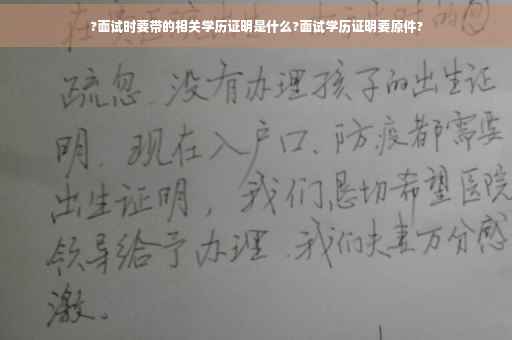 ?面试时要带的相关学历证明是什么?面试学历证明要原件?
疏忽、没有办理孩子的出生证
明、现在入户口、防疫都需要
出生证明，我们恳切希望医院
领导给予办理、我们夫妻万分感
激。